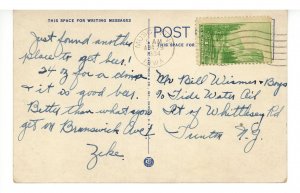 THIS SPACE FOR WRITING MESSAGES
POST
Just found another
place to get beer!
24 oz for a dime
& it is good beer.
Better than what you
get on Brunswick Ave!
Zeke
Mr Bill Wismer & Boys
c/o Tide Water Oil
Ft of Whittlesey Rd
Trenton N.J.